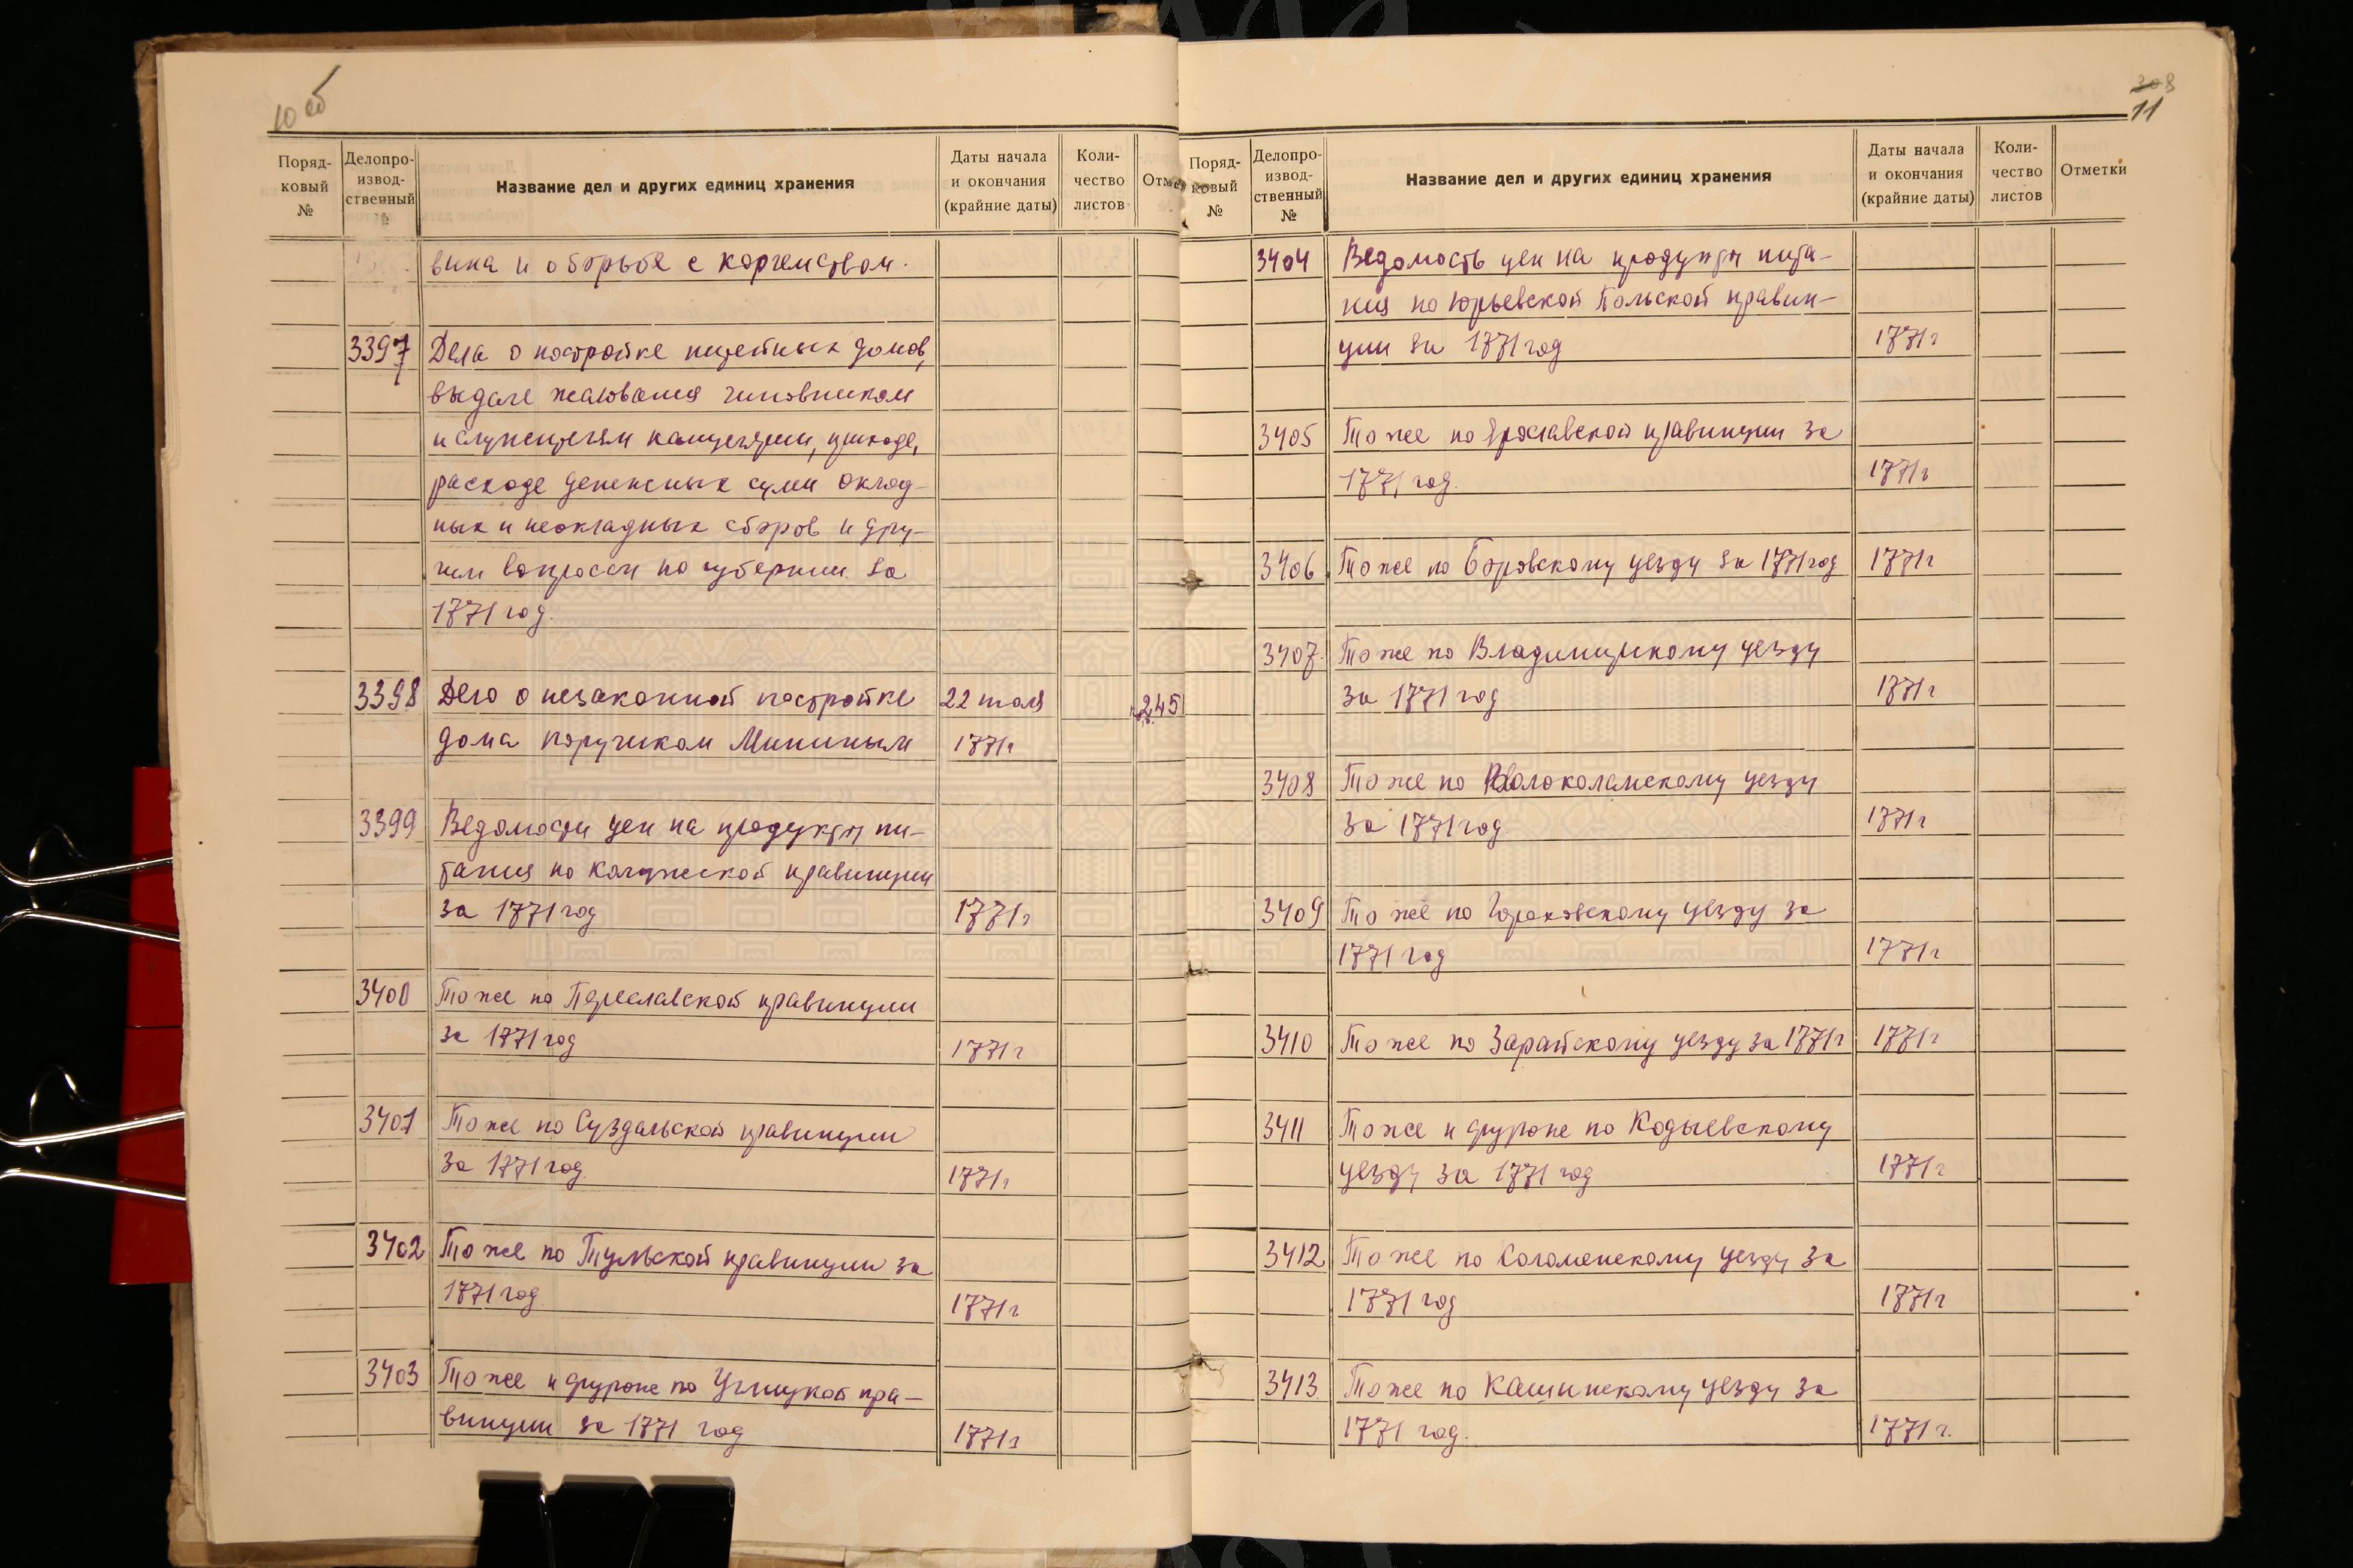 10 об
Поряд-
ковый
№
Делопро-
извод-
ственный
№
Название дел и других единиц хранения
Даты начала
и окончания
(крайние даты)
Коли-
чество
листов
вина и о борьбе с корчемством.
3397 Дела о постройке питейных домов,
выдаче жалования чиновникам
и служителям канцелярии, приходе,
расходе денежных сумм оклад-
ных и неокладных сборов и дру-
гим вопросам по губернии за
1771 год.
3398 Дело о незаконной постройке 22 июля 245
дома поручиком Мининым 1771г
3399 Ведомости цен на продукты пи-
тания по Калужской правинции
за 1771 год 1771г
3400 То же по Переславской правинции
за 1771 год 1771г
3401 То же по Суздальской правинции
За 1771 год 1771г
3402 То же по Тульской правинции за
1771 год 1771г
3403 То же и другое по Углицкой пра-
винции за 1771 год 1771г
308
11
Поряд-
ковый
№
Делопро-
извод-
ственный
№
Название дел и других единиц хранения
Даты начала
и окончания
(крайние даты)
Коли-
чество
листов
Отметки
3404 Ведомость цен на продукты пита-
ния по Юрьевской Польской правин-
ции за 1771 год 1771г
3405 То же по Ярославской правинции за
1771 год. 1771г
3406 То же по Боровскому уезду за 1771 год 1771г
3407. То же по Владимирскому уезду
за 1771 год 1771г
3408 То же по Волоколамскому уезду
за 1771 год 1771г
3409 То же по Гороховскому уезду за
1771 год 1771г
3410 То же по Зарайскому уезду за 1771г 1771г
3411 То же и другое по Кадыевскому
уезду за 1771 год 1771г
3412 То же по Коломенскому уезду за
1771 год 1771г
3413 То же по Кашинскому уезду за
1771 год. 1771г.